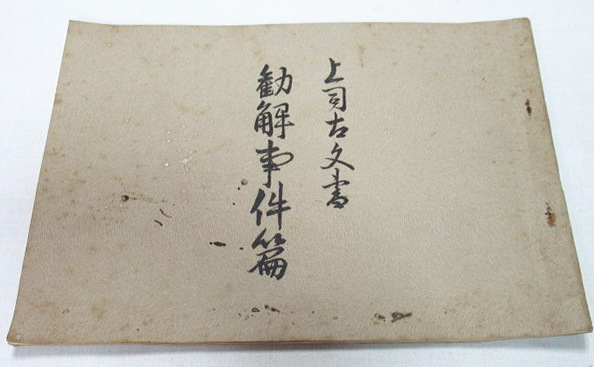 上司古文書
勧解事件篇